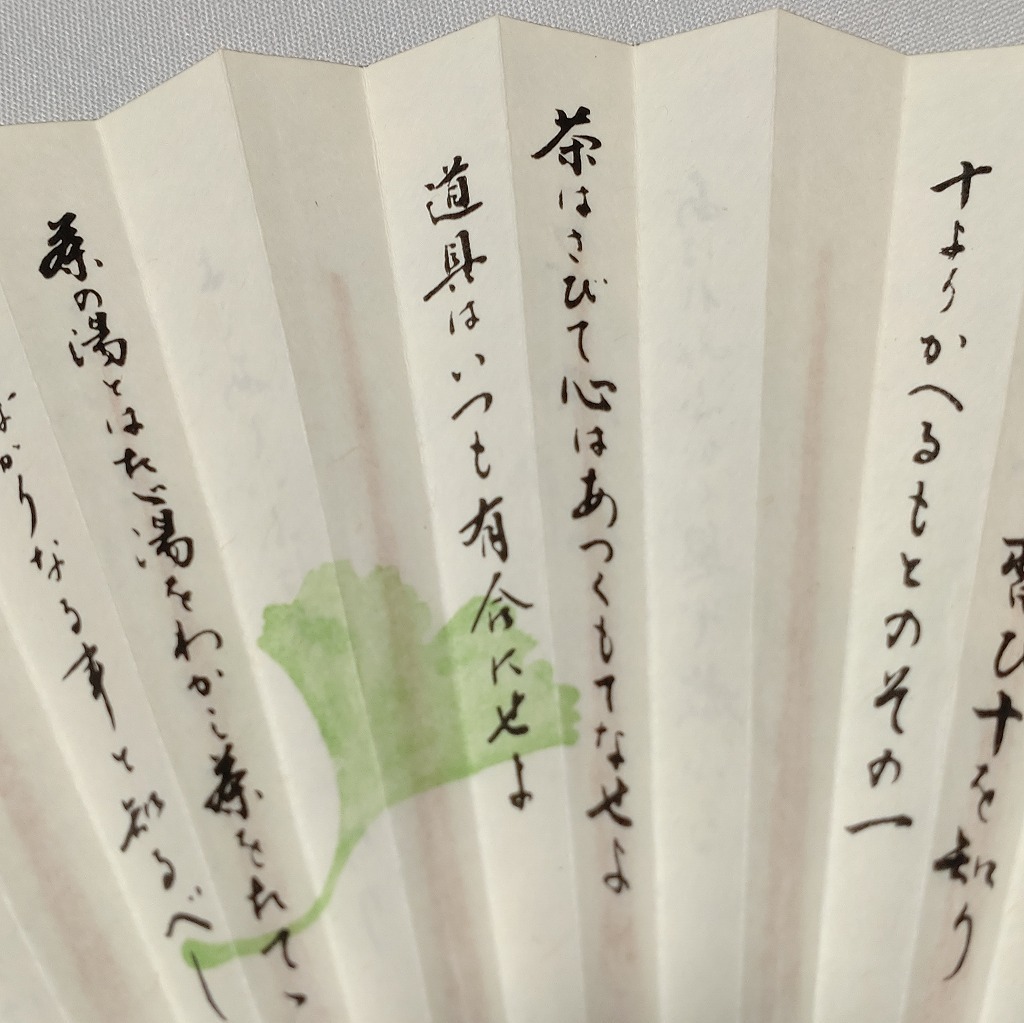 習ひ十を知り
十よりかへるもとのその一
茶はさびて心はあつくもてなせよ
道具はいつも有合にせよ
茶の湯とはたゞ湯をわかし茶をたてゝ
ばかりなる事と知るべし